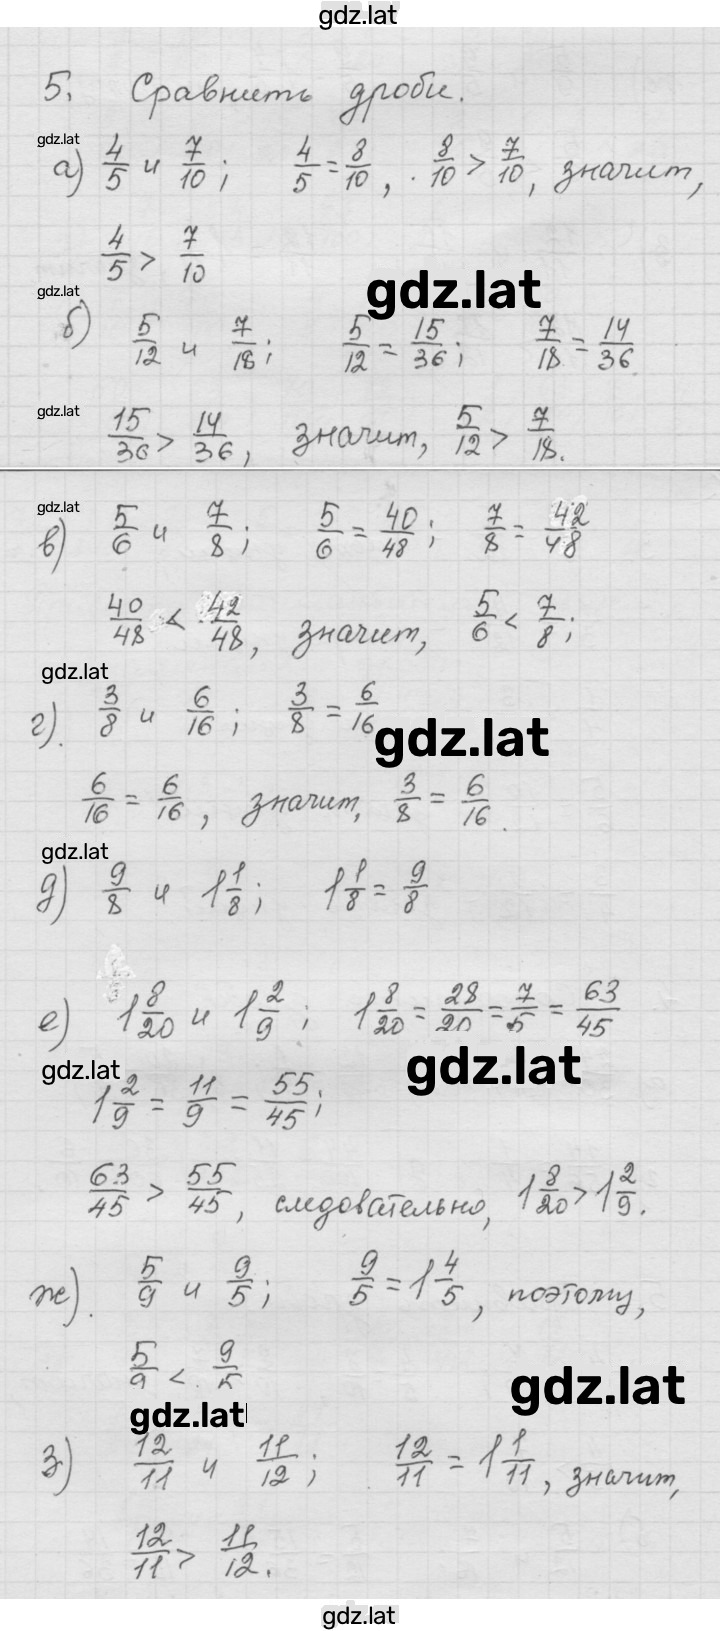 gdz.lat
5. Сравнить дроби.
gdz.lat
а) 4/5 и 7/10; 4/5 = 8/10, 8/10 > 7/10, значит,
4/5 > 7/10
gdz.lat
gdz.lat
б) 5/12 и 7/18; 5/12 = 15/36; 7/18 = 14/36
gdz.lat
15/36 > 14/36, значит, 5/12 > 7/18.
gdz.lat
в) 5/6 и 7/8; 5/6 = 40/48; 7/8 = 42/48
40/48 < 42/48, значит, 5/6 < 7/8;
gdz.lat
г). 3/8 и 6/16; 3/8 = 6/16
gdz.lat
6/16 = 6/16, значит, 3/8 = 6/16.
gdz.lat
д) 9/8 и 1 1/8; 1 1/8 = 9/8
е) 1 8/20 и 1 2/9; 1 8/20 = 28/20 = 7/5 = 63/45
gdz.lat
gdz.lat
1 2/9 = 11/9 = 55/45;
63/45 > 55/45, следовательно, 1 8/20 > 1 2/9.
ж). 5/9 и 9/5; 9/5 = 1 4/5, поэтому,
5/9 < 9/5
gdz.lat
gdz.lat
з) 12/11 и 11/12; 12/11 = 1 1/11, значит,
12/11 > 11/12.
gdz.lat